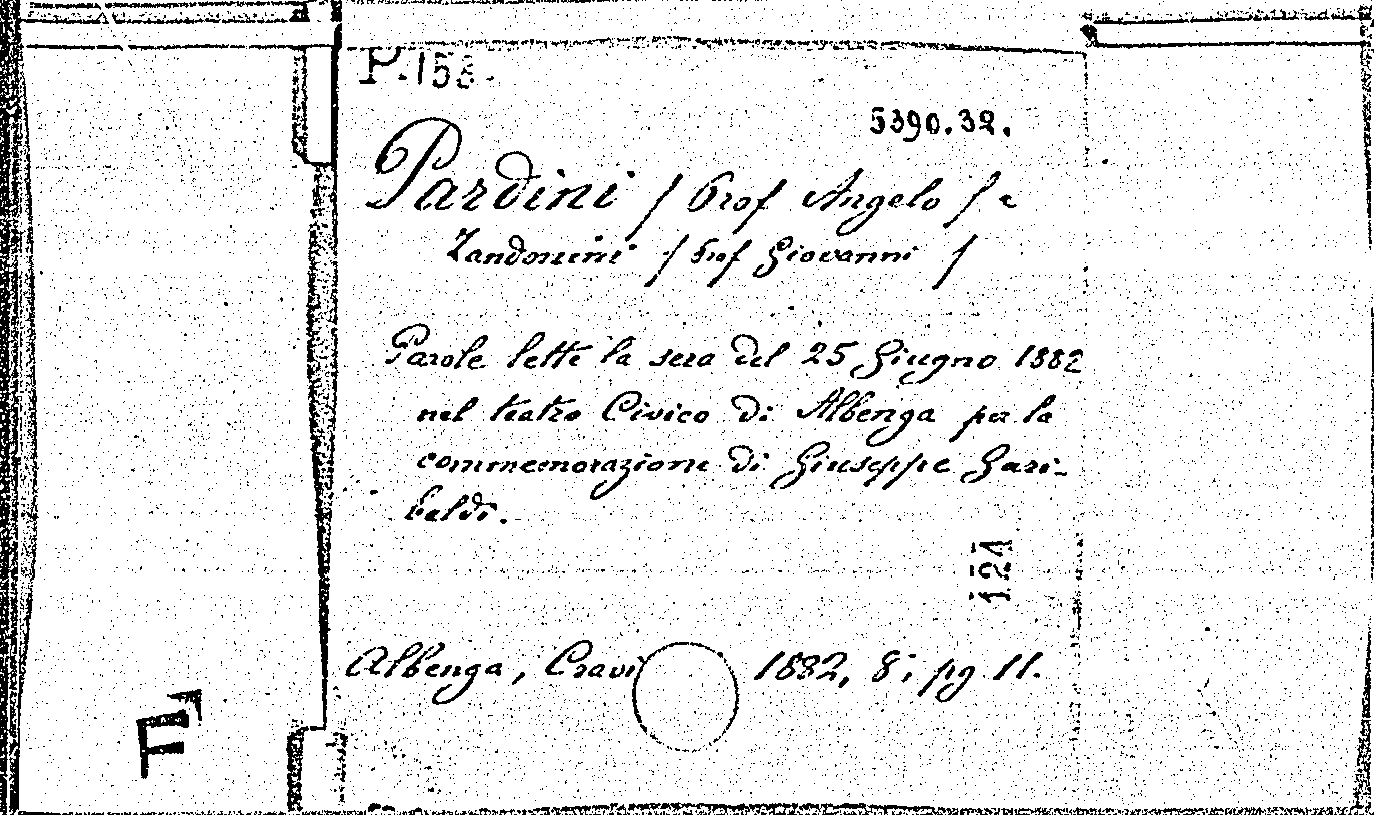 P.158.
5390.32.
Pardini / Prof Angelo / e
Zandonini / Prof Giovanni /
Parole lette la sera del 25 Giugno 1882
nel teatro Civico di Albenga per la
commemorazione di Giuseppe Gari-
baldi.
121
Albenga, Cravi 1882, 8°, pg 11.
F